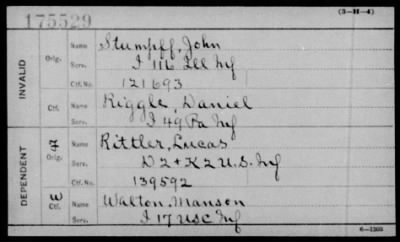 175529
(3-H-4)
INVALID
Orig.
Name Stumpff, John
Serv. I 116 Ill Inf
Ctf. No. 121693
Ctf.
Name Riggle, Daniel
Serv. I 49 Pa Inf
DEPENDENT
Orig.
Name Rittler, Lucas
Serv. D 2 + K 2 U.S. Inf
Ctf. No. 139592
W
Ctf.
Name Walton, Manson
Serv. I 17 USC Inf